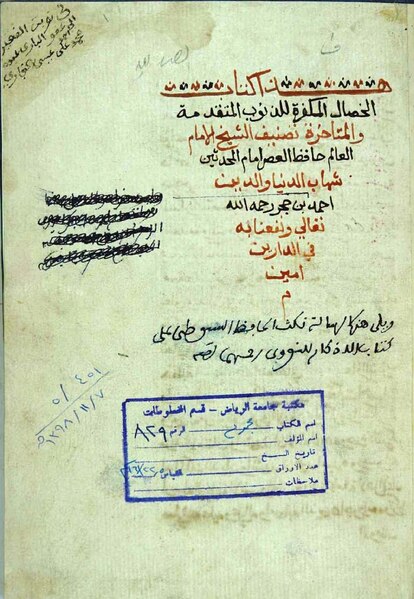 هذا كتاب
الخصال المكفرة للذنوب المتقدمة
والمتاخرة تصنيف الشيخ الامام
العالم حافظ العصر امام المحدثين
شهاب الدنيا والدين
احمد بن حجر رحمه الله
تعالى ونفعنا به
في الدارين
امين
م
ويلي هذه الرسالة نكت الحافظ السيوطي على
كتاب الاذكار للنووي رحمهما الله
مكتبة جامعة الرياض - قسم المخطوطات
اسم الكتاب مجموع الرقم ٨٢٩
اسم المؤلف
تاريخ النسخ
عدد الاوراق القياس
ملاحظات